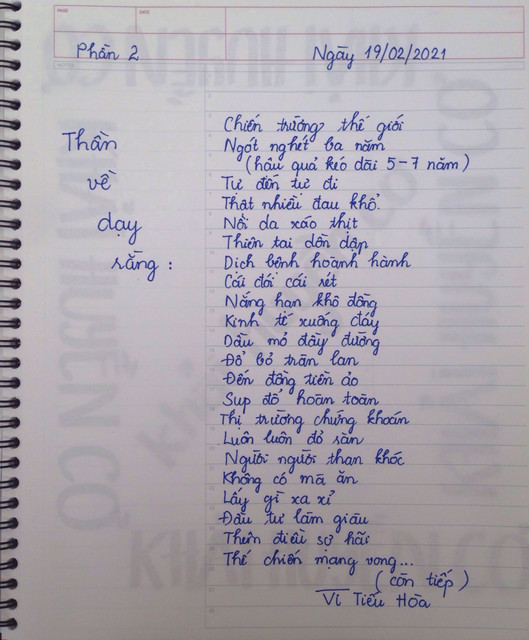 Phần 2
Ngày 19/02/2021
Thần
về
dạy
rằng :
Chiến trường thế giới
Ngót nghét ba năm
(hậu quả kéo dài 5-7 năm)
Tự đến tự đi
Thật nhiều đau khổ.
Nồi da xáo thịt
Thiên tai dồn dập
Dịch bệnh hoành hành
Cái đói cái rét
Nắng hạn khô đồng
Kinh tế xuống đáy
Dầu mỏ đầy đường
Đổ bỏ tràn lan
Đến đồng tiền ảo
Sụp đổ hoàn toàn
Thị trường chứng khoán
Luôn luôn đỏ sàn
Người người than khóc
Không có mà ăn
Lấy gì xa xỉ
Đầu tư làm giàu
Thêm điều sợ hãi
Thế chiến mạng vong...
(còn tiếp)
Vĩ Tiểu Hòa